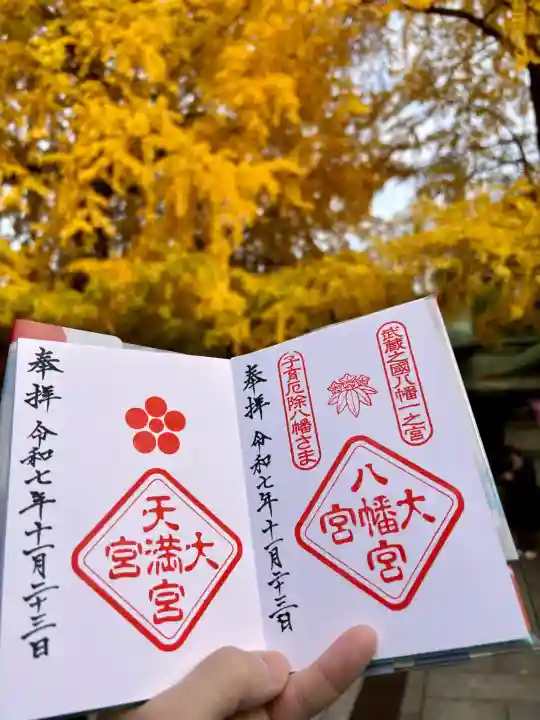 武蔵之國八幡一之宮
子育厄除八幡さま
大宮
八幡宮
奉拝 令和七年十一月二十三日
大宮
天満宮
奉拝 令和七年十一月二十三日